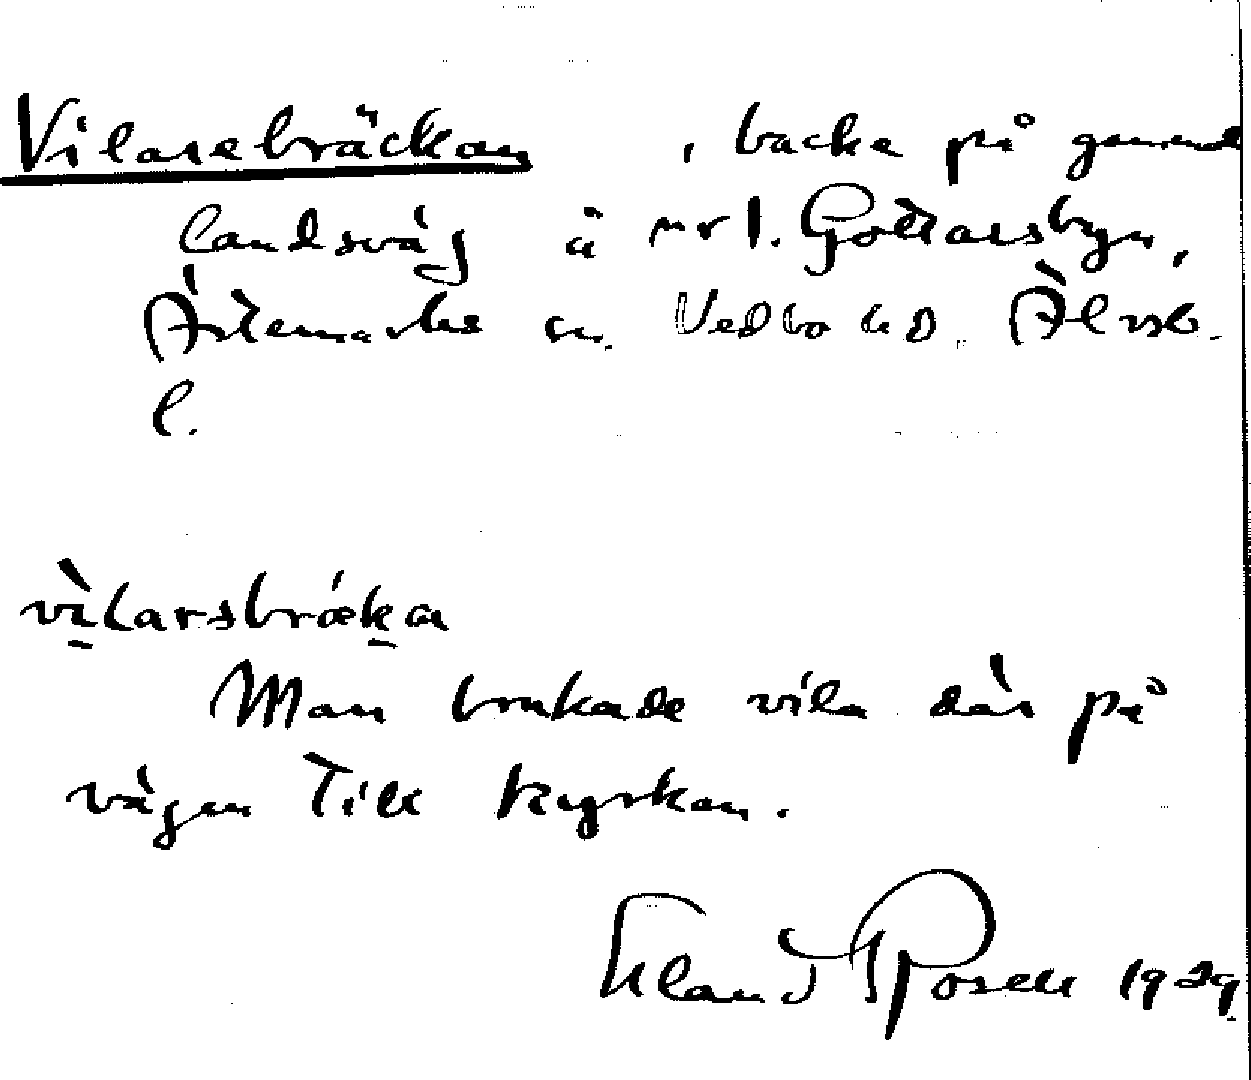 Vilarebräckan, backe på gammal
landsväg å nr 1. Gottarsbyn,
Ärtemarks sn. Vedbo hd. Älvsb.
l.
vìlarsbrækan
Man brukade vila där på
vägen till kyrkan.
Erland Rosell 1929